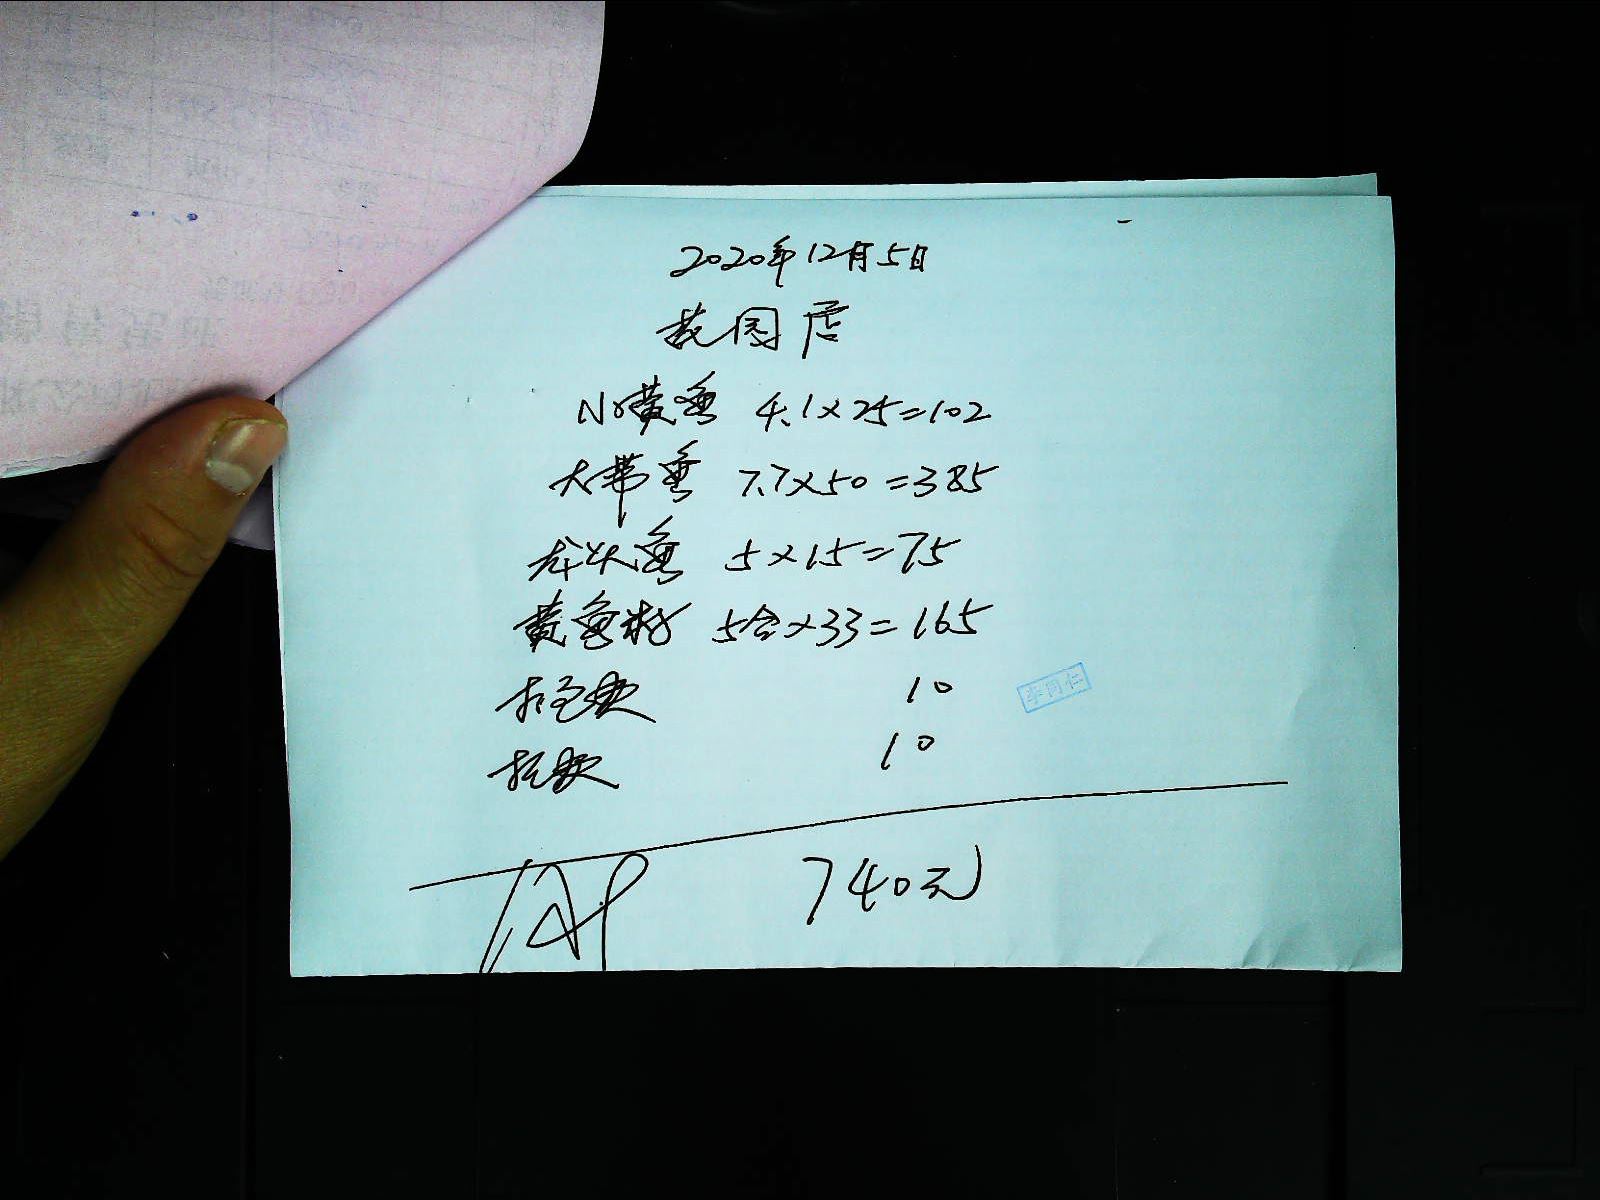 2020年12月5日
花园店
黄鱼 4.1×25=102
大带鱼 7.7×50=385
龙头鱼 5×15=75
黄鱼籽 5合×33=165
10
10
740元
李同仁